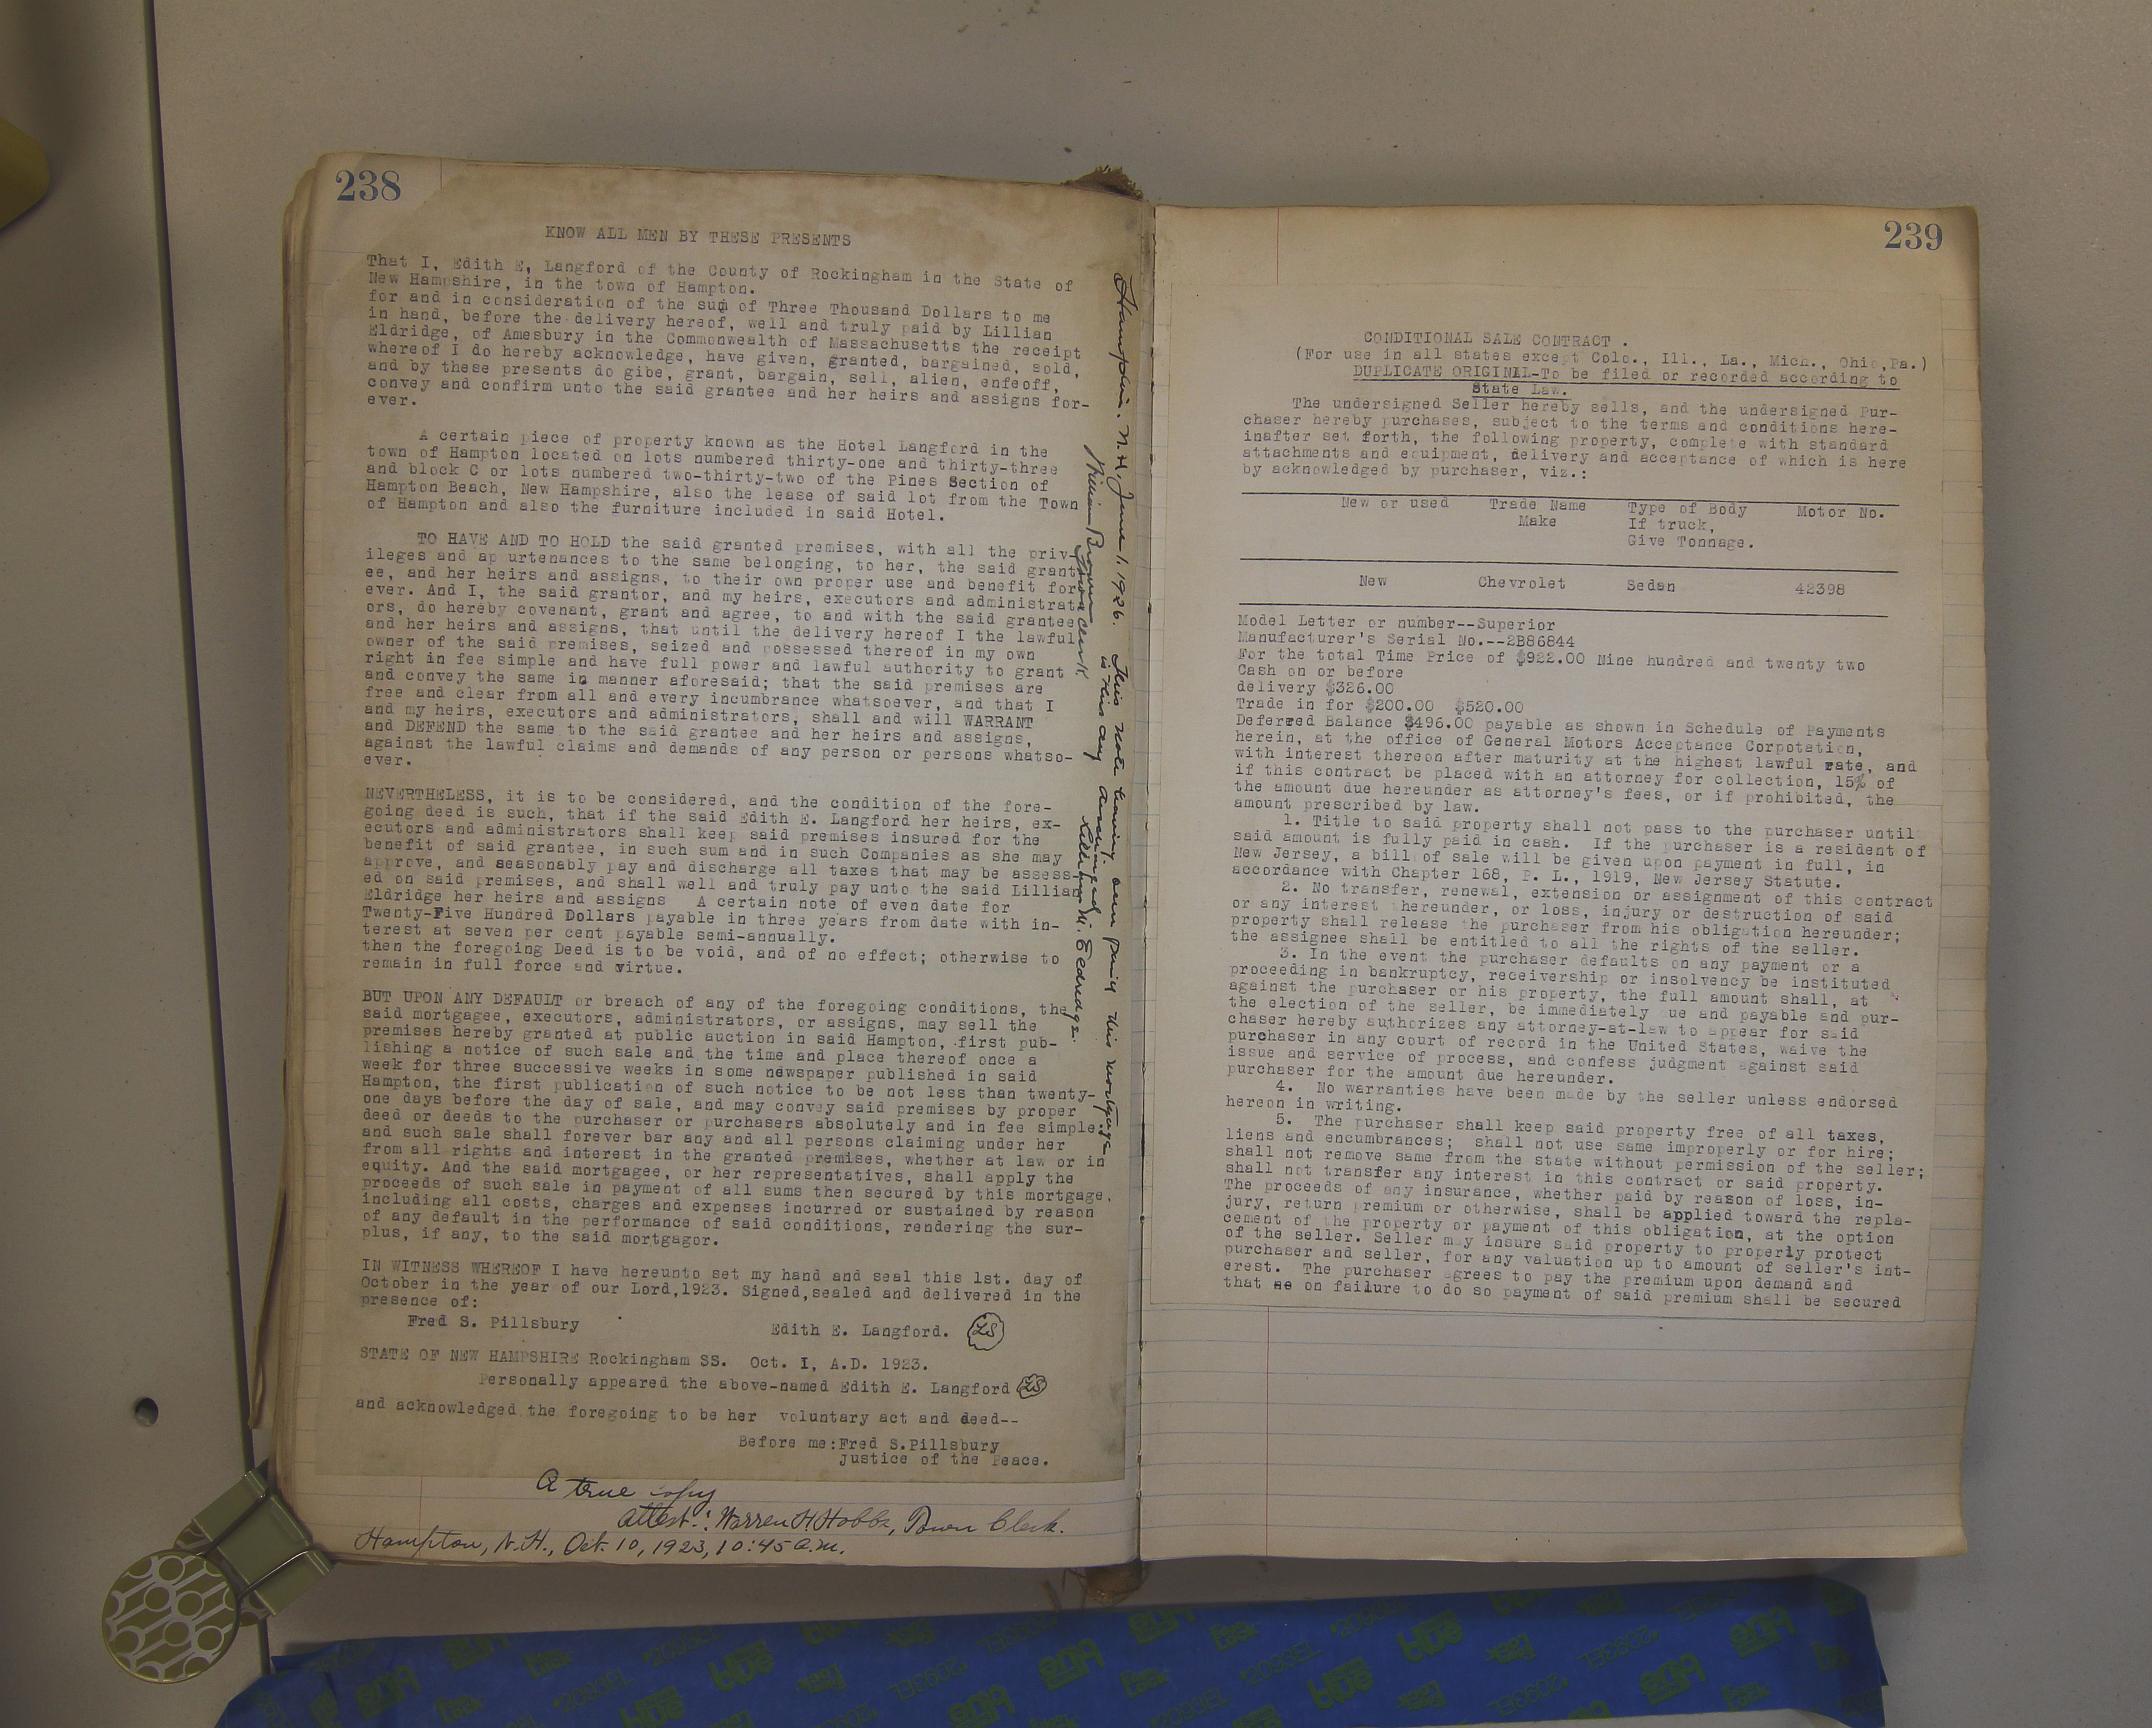 238
KNOW ALL MEN BY THESE PRESENTS
That I, Edith E, Langford of the County of Rockingham in the State of
New Hampshire, in the town of Hampton.
for and in consideration of the sum of Three Thousand Dollars to me
in hand, before the delivery hereof, well and truly paid by Lillian
Eldridge, of Amesbury in the Commonwealth of Massachusetts the receipt
whereof I do hereby acknowledge, have given, granted, bargained, sold,
and by these presents do gibe, grant, bargain, sell, alien, enfeoff,
convey and confirm unto the said grantee and her heirs and assigns for-
ever.
A certain piece of property known as the Hotel Langford in the
town of Hampton located on lots numbered thirty-one and thirty-three
and block C or lots numbered two-thirty-two of the Pines Section of
Hampton Beach, New Hampshire, also the lease of said lot from the Town
of Hampton and also the furniture included in said Hotel.
TO HAVE AND TO HOLD the said granted premises, with all the priv-
ileges and ap urtenances to the same belonging, to her, the said grant
ee, and her heirs and assigns, to their own proper use and benefit for
ever. And I, the said grantor, and my heirs, executors and administrat
ors, do hereby covenant, grant and agree, to and with the said grantee
and her heirs and assigns, that until the delivery hereof I the lawful
owner of the said premises, seized and possessed thereof in my own
right in fee simple and have full power and lawful authority to grant
and convey the same in manner aforesaid; that the said premises are
free and clear from all and every incumbrance whatsoever, and that I
and my heirs, executors and administrators, shall and will WARRANT
and DEFEND the same to the said grantee and her heirs and assigns,
against the lawful claims and demands of any person or persons whatso-
ever.
NEVERTHELESS, it is to be considered, and the condition of the fore-
going deed is such, that if the said Edith E. Langford her heirs, ex-
ecutors and administrators shall keep said premises insured for the
benefit of said grantee, in such sum and in such Companies as she may
approve, and seasonably pay and discharge all taxes that may be assess
ed on said premises, and shall well and truly pay unto the said Lillian
Eldridge her heirs and assigns A certain note of even date for
Twenty-Five Hundred Dollars payable in three years from date with in-
terest at seven per cent payable semi-annually.
then the foregoing Deed is to be void, and of no effect; otherwise to
remain in full force and virtue.
BUT UPON ANY DEFAULT or breach of any of the foregoing conditions, the
said mortgagee, executors, administrators, or assigns, may sell the
premises hereby granted at public auction in said Hampton, first pub-
lishing a notice of such sale and the time and place thereof once a
week for three successive weeks in some newspaper published in said
Hampton, the first publication of such notice to be not less than twenty-
one days before the day of sale, and may convey said premises by proper
deed or deeds to the purchaser or purchasers absolutely and in fee simple;
and such sale shall forever bar any and all persons claiming under her
from all rights and interest in the granted premises, whether at law or in
equity. And the said mortgagee, or her representatives, shall apply the
proceeds of such sale in payment of all sums then secured by this mortgage,
including all costs, charges and expenses incurred or sustained by reason
of any default in the performance of said conditions, rendering the sur-
plus, if any, to the said mortgagor.
IN WITNESS WHEREOF I have hereunto set my hand and seal this 1st. day of
October in the year of our Lord,1923. Signed,sealed and delivered in the
presence of:
Fred S. Pillsbury Edith E. Langford. LS
STATE OF NEW HAMPSHIRE Rockingham SS. Oct. I, A.D. 1923.
Personally appeared the above-named Edith E. Langford LS
and acknowledged the foregoing to be her voluntary act and deed--
Before me:Fred S.Pillsbury
Justice of the Peace.
A true copy
attest: Warren H. Hobbs, Town Clerk.
Hampton, N.H., Oct. 10, 1923, 10:45 a.m.
Hampton. N.H. June 1. 1926. This note having been paid this mortgage
is this day discharged
Lillian M. Eldredge.
William Brown
Town Clerk
239
CONDITIONAL SALE CONTRACT .
(For use in all states except Colo., Ill., La., Mich., Ohio,Pa.)
DUPLICATE ORIGINAL-To be filed or recorded according to
State Law.
The undersigned Seller hereby sells, and the undersigned Pur-
chaser hereby purchases, subject to the terms and conditions here-
inafter set forth, the following property, complete with standard
attachments and equipment, delivery and acceptance of which is here
by acknowledged by purchaser, viz.:
New or used Trade Name Type of Body Motor No.
Make If truck,
Give Tonnage.
New Chevrolet Sedan 42398
Model Letter or number--Superior
Manufacturer's Serial No.--2B86844
For the total Time Price of $922.00 Nine hundred and twenty two
Cash on or before
delivery $326.00
Trade in for $200.00 $520.00
Deferred Balance $496.00 payable as shown in Schedule of Payments
herein, at the office of General Motors Acceptance Corpotation,
with interest thereon after maturity at the highest lawful rate, and
if this contract be placed with an attorney for collection, 15% of
the amount due hereunder as attorney's fees, or if prohibited, the
amount prescribed by law.
1. Title to said property shall not pass to the purchaser until
said amount is fully paid in cash. If the purchaser is a resident of
New Jersey, a bill of sale will be given upon payment in full, in
accordance with Chapter 168, P. L., 1919, New Jersey Statute.
2. No transfer, renewal, extension or assignment of this contract
or any interest thereunder, or loss, injury or destruction of said
property shall release the purchaser from his obligation hereunder;
the assignee shall be entitled to all the rights of the seller.
3. In the event the purchaser defaults on any payment or a
proceeding in bankruptcy, receivership or insolvency be instituted
against the purchaser or his property, the full amount shall, at
the election of the seller, be immediately due and payable and pur-
chaser hereby authorizes any attorney-at-law to appear for said
purchaser in any court of record in the United States, waive the
issue and service of process, and confess judgment against said
purchaser for the amount due hereunder.
4. No warranties have been made by the seller unless endorsed
hereon in writing.
5. The purchaser shall keep said property free of all taxes,
liens and encumbrances; shall not use same improperly or for hire;
shall not remove same from the state without permission of the seller;
shall not transfer any interest in this contract or said property.
The proceeds of any insurance, whether paid by reason of loss, in-
jury, return premium or otherwise, shall be applied toward the repla-
cement of the property or payment of this obligation, at the option
of the seller. Seller may insure said property to properly protect
purchaser and seller, for any valuation up to amount of seller's int-
erest. The purchaser agrees to pay the premium upon demand and
that on failure to do so payment of said premium shall be secured